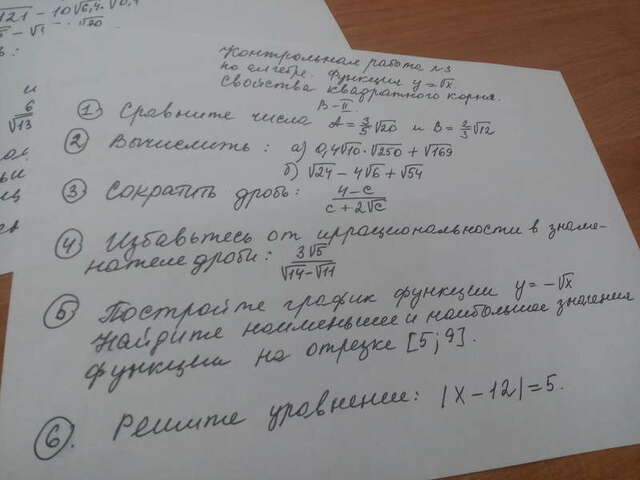 √121 - 10√6,4 · √0,1
Контрольная работа №3
по алгебре. Функция y=√x
Свойства квадратного корня.
В-II
① Сравните числа A = 3/5 √20 и B = 2/3 √12
② Вычислить: а) 0,4√10 · √250 + √169
б) √24 - 4√6 + √54
③ Сократить дробь: 4-c / c+2√c
④ Избавьтесь от иррациональности в знаме-
нателе дроби: 3√5 / √14-√11
⑤ Постройте график функции y = -√x
Найдите наименьшее и наибольшее значения
функции на отрезке [5; 9].
⑥. Решите уравнение: |x-12|=5.
и
6
√13